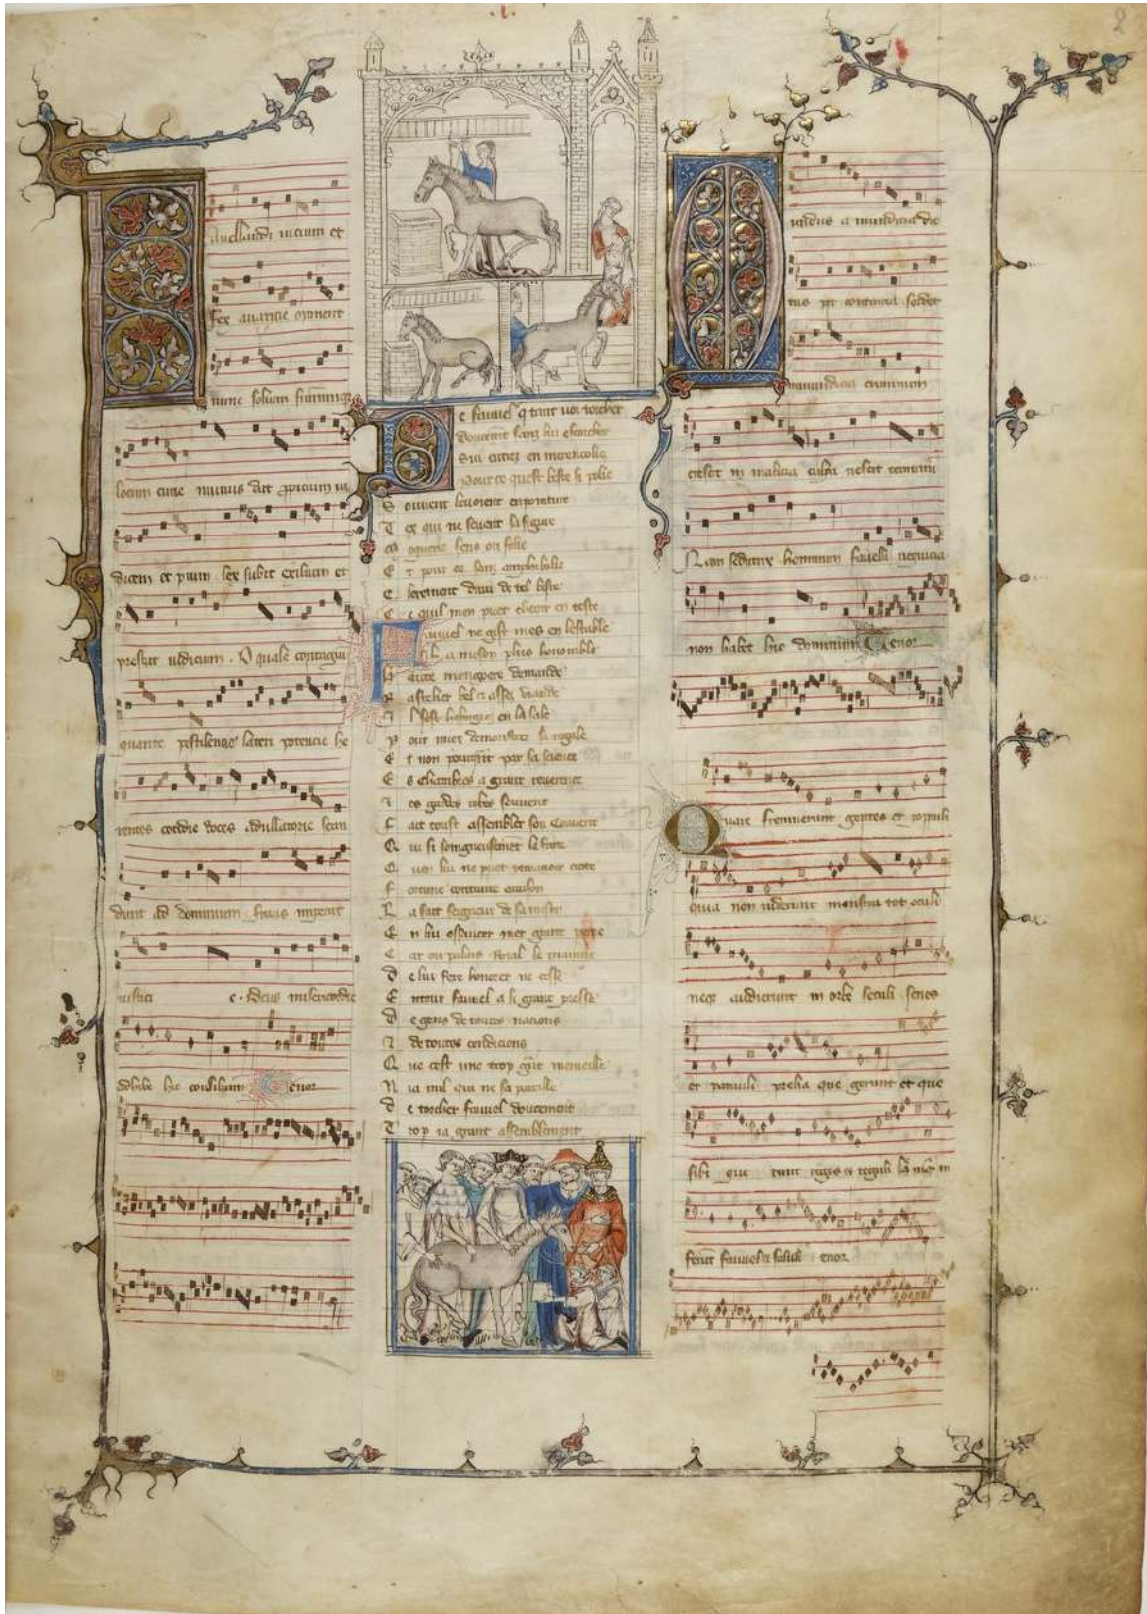 .i.
avellandi vicium et
fex avaricie optinent
nunc solium summumque
locum curie munus dat propicium iu
dicem et pium lex subit exilium et
prestat vicium. O quale contagiu
quante pestilencie lateri potencie he
rentes cotidie voces adulatorie scan
dunt ad dominium
e. deus misericordie
adhibe hic consilium Tenor
e fauvel q tant voi torcher
doucement sanz lui escorcher
Sui entrez en merencolie
Pour ce quest beste si polie
Souvent le voient en painture
Tex qui ne sevent la figure
Moquerie sens ou folie
Et pour ce sanz amphibolie
Clerement dirai de tel beste
Ce quil men puet cheoir en teste
Fauvel ne gist mes en lestable
Il a meson plus honorable
Haute mengoere demande
Rastelier bel et assez viande
Il sest herbergiez en la sale
Pour miex demonstrer la regale
Et non pourquant par sa science
Es chambres a grant reverence
Fait tost assembler son couvent
Qui si songneusement le frote
Quen lui ne puet remanoir crote
Fortune contraire a raison
La fait seigneur de sa meson
En lui essaucier met grant peine
Car ou palais roial le maine
De lui fere honorer ne cesse
Entour fauvel a si grant presse
De gens de toutes nacions
Et de toutes condicions
Que cest une trop grant merveille
Ni a nul qui ne sa pareille
De torcher fauvel doucement
Trop i a grant assemblement
undus a mundicia dic
tus per contraria sordet
inmundicia criminum
crescit in malicia culpa nescit terminum
Nam seductrix hominum favelli nequicia
non habet hic dominium Tenor
Quare fremuerunt gentes et populi
quia non viderunt monstra tot oculi
neque audierunt in orbe seculi senes
et parvuli prelia que gerunt et que
sibi querunt reges et reguli hec inquam in
ferunt fauvel et falvuli Tenor